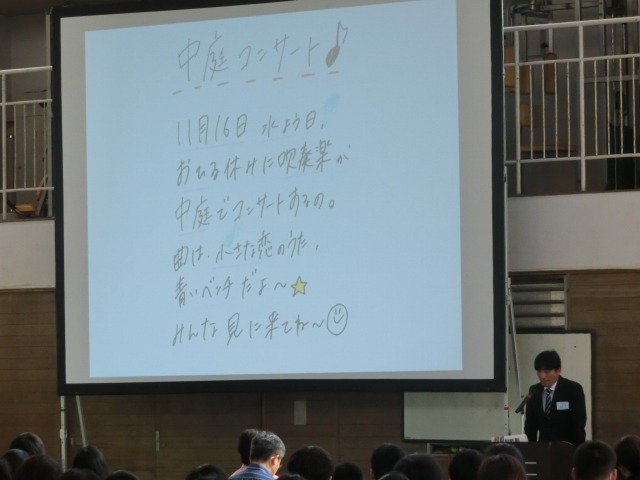 中庭コンサート♪
11月16日 水よう日、
おひる休みに吹奏楽が
中庭でコンサートあるの。
曲は、小さな恋のうた、
青いベンチだよ〜☆
みんな見に来てね〜☺